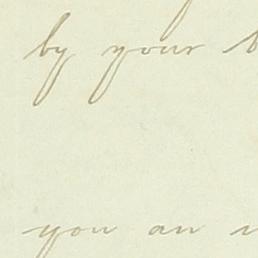 by your
you an